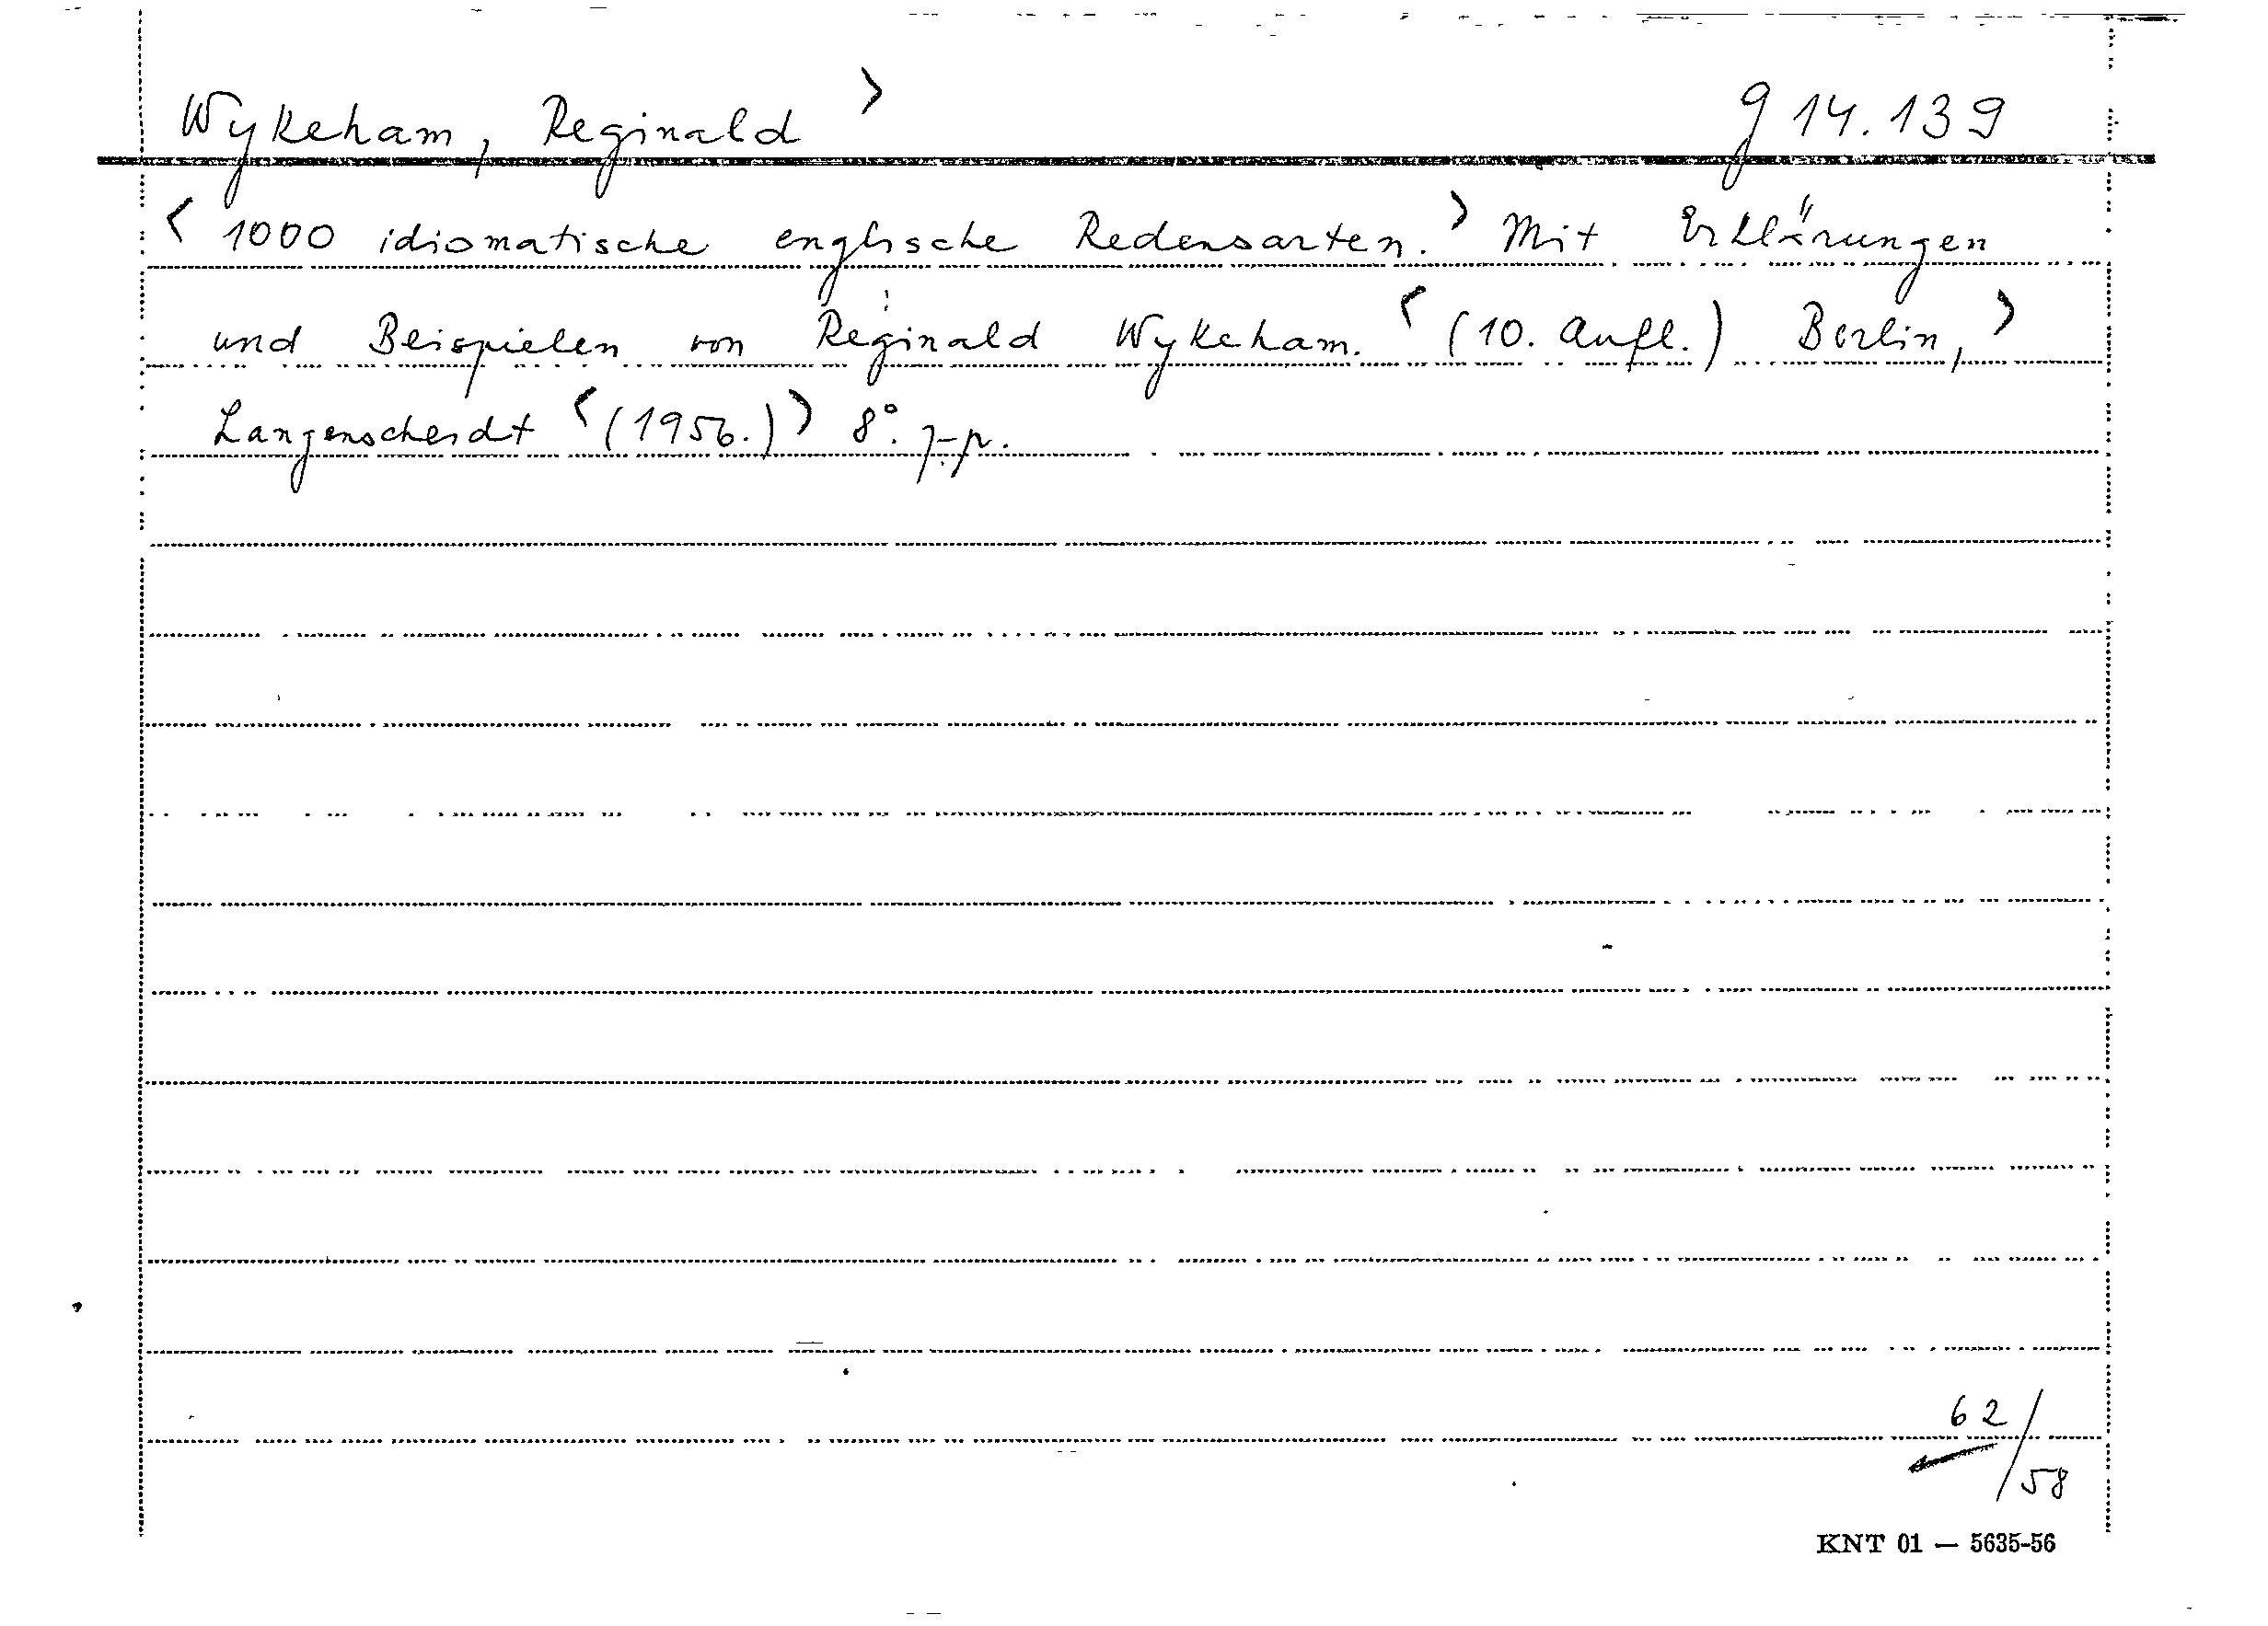 Wykeham, Reginald > g 14.139
< 1000 idiomatische englische Redensarten. > Mit Erklärungen
und Beispielen von Reginald Wykeham. < (10. Aufl.) Berlin, >
Langenscheidt < (1956.) > 8°.
62/58
KNT 01 — 5635-56